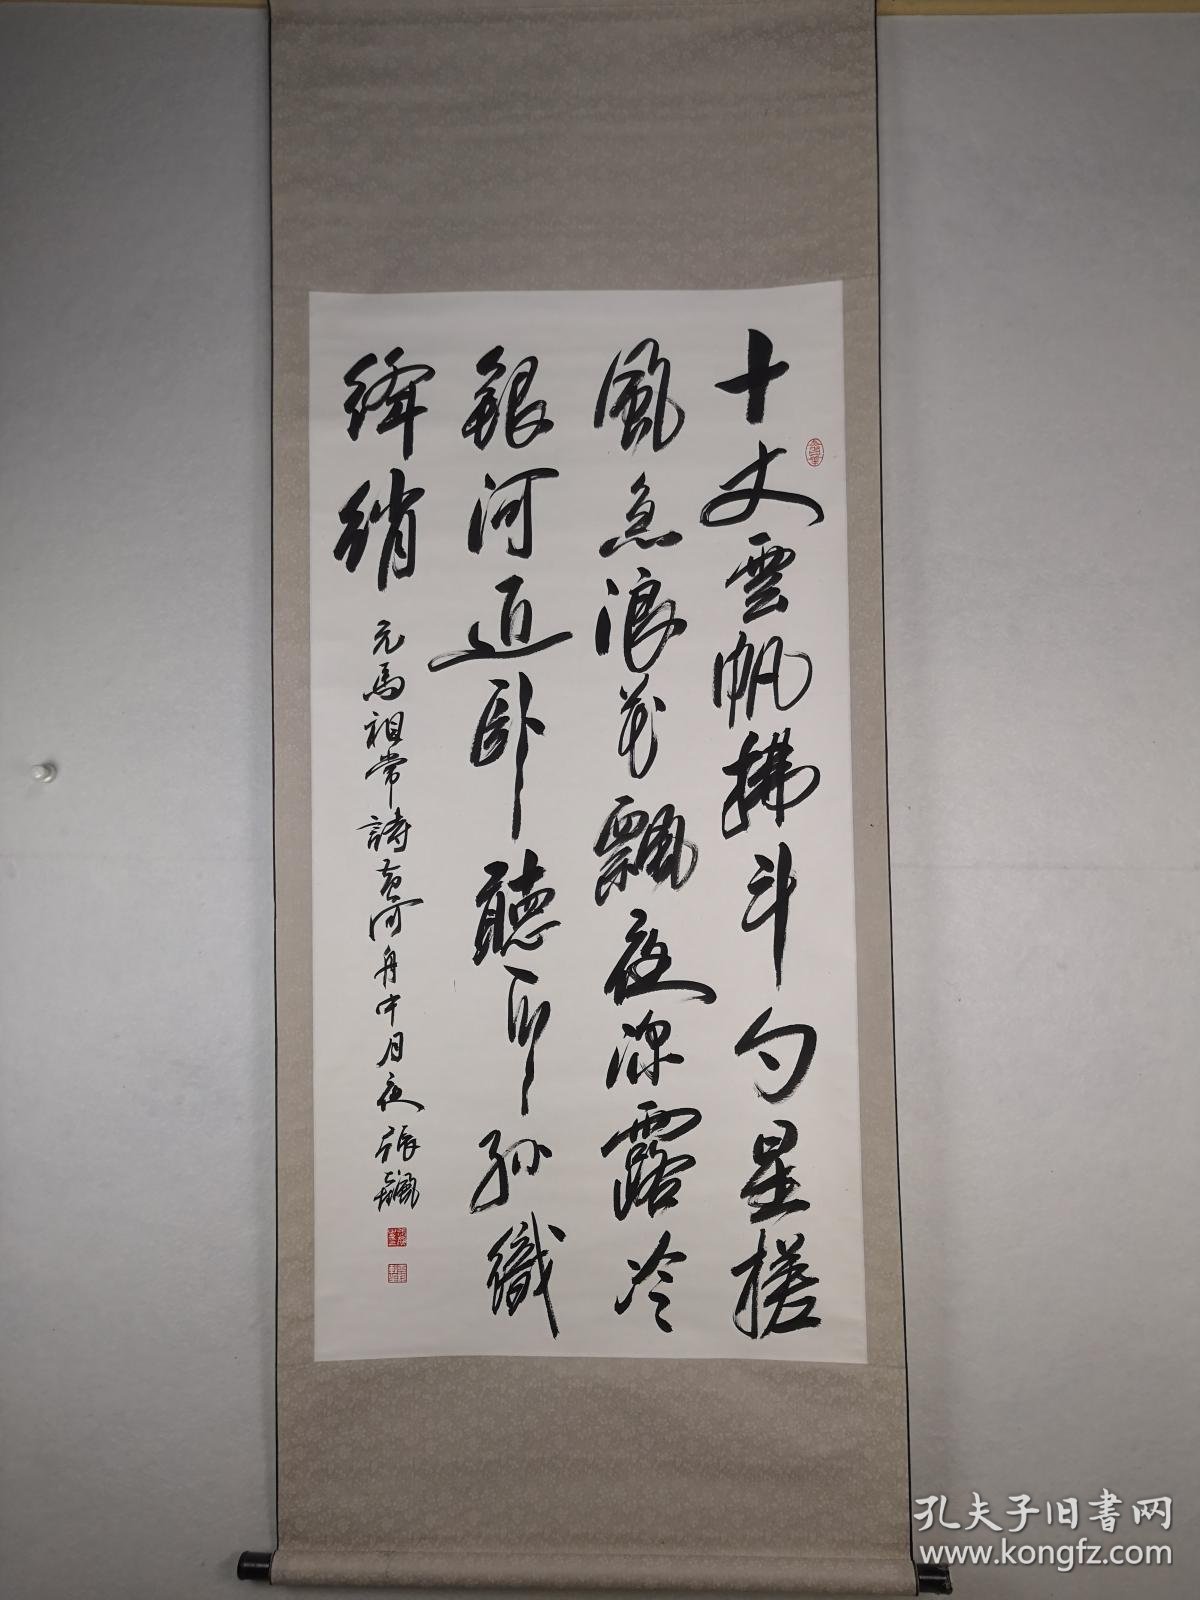 十丈雲帆拂斗勺星槎
風急浪花飄夜深露冷
銀河近卧聽孫織
絳綃
元馬祖常詩黃河舟中月夜 張飆
孔夫子旧書网
www.kongfz.com